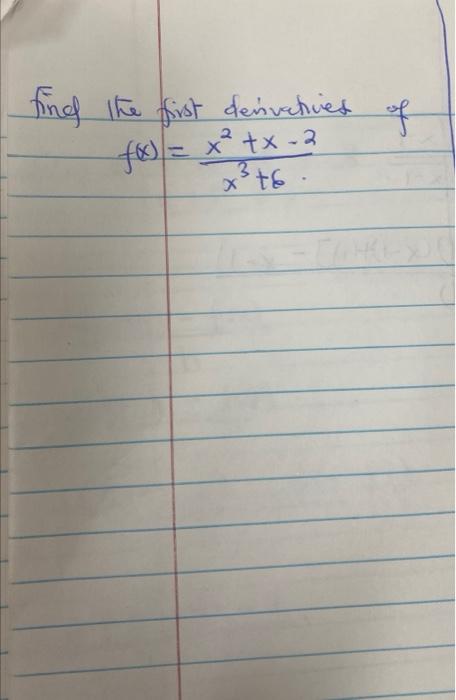 find the first derivatives of
f(x) = x² + x - 2
x³ + 6 .